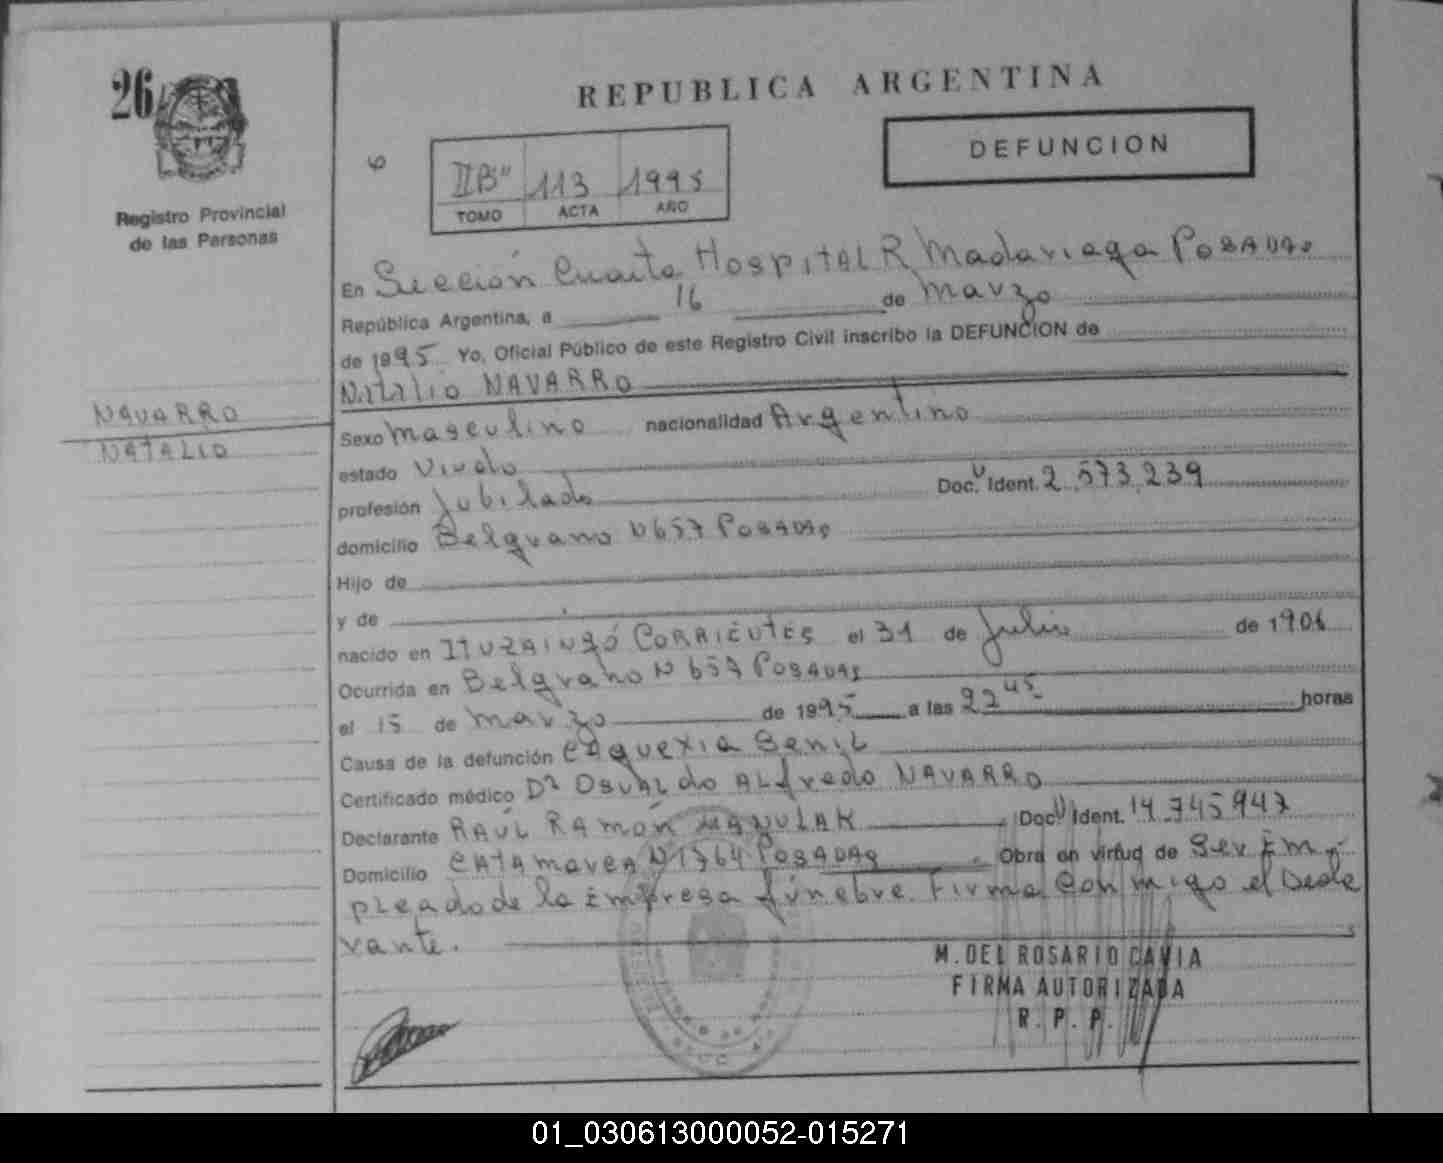 26
Registro Provincial
de las Personas
NAVARRO
NATALIO
REPUBLICA ARGENTINA
6
II B" 113 1995
TOMO ACTA AÑO
DEFUNCION
En Sección Cuarta Hospital R Madariaga Posadas
República Argentina, a 16 de marzo
de 1995 Yo, Oficial Público de este Registro Civil inscribo la DEFUNCION de
Natalio NAVARRO
Sexo masculino nacionalidad Argentino
estado Viudo
profesión Jubilado Doc. U Ident. 2.573.239
domicilio Belgrano N 657 Posadas
Hijo de
y de
nacido en Ituzaingó Corrientes el 31 de Julio de 1906
Ocurrida en Belgrano N 657 Posadas
el 15 de marzo de 1995 a las 22 45 horas
Causa de la defunción Caquexia Senil
Certificado médico Dr Osvaldo Alfredo NAVARRO
Declarante RAÚL RAMÓN MAÑULAK Doc. U Ident. 14.745.947
Domicilio Catamarca N 1764 Posadas Obra en virtud de Ser Em-
pleado de la Empresa fúnebre. Firma Conmigo el Decla
rante.
M. DEL ROSARIO CAVIA
FIRMA AUTORIZADA
R. P. P.
01_030613000052-015271